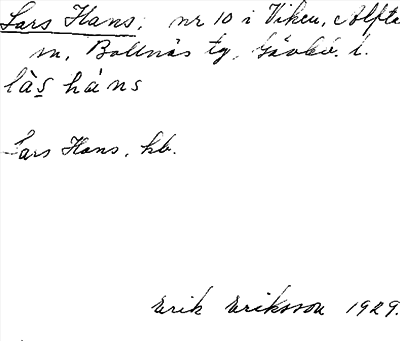 Lars Hans, nr 10 i Viken, Alfta
sn, Bollnäs tg, Gävleb. l.
làs̲ háns
Lars Hans, kb.
Erik Eriksson 1929.